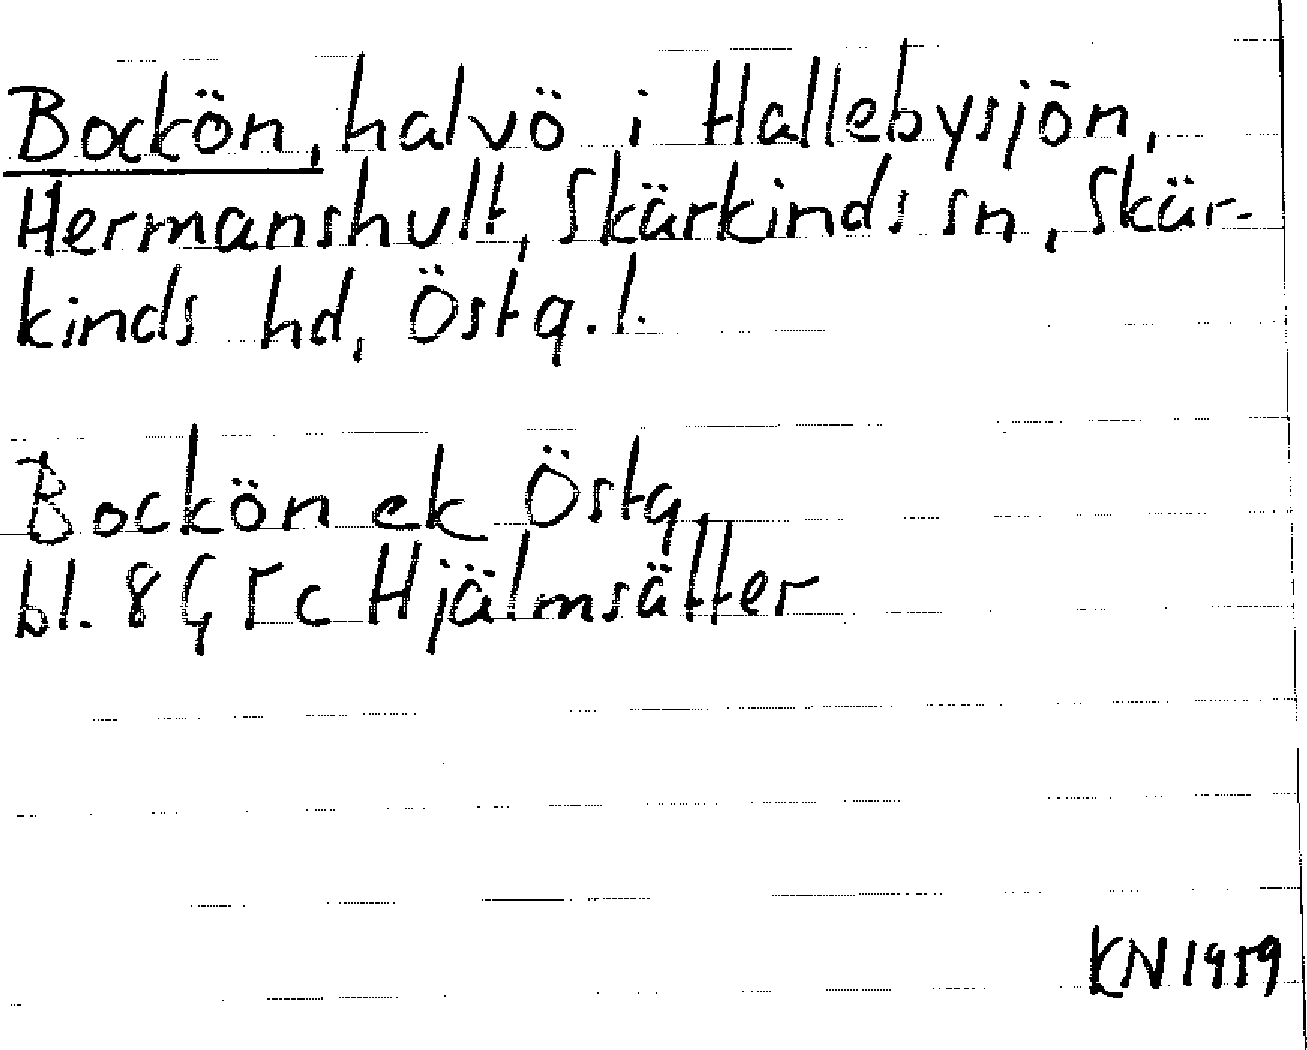 Bockön, halvö i Hallebysjön,
Hermanshult, Skärkinds sn, Skär-
kinds hd, Östg. l.
Bockön ek Östg.
bl. 8G 5c Hjälmsätter
KN 1959